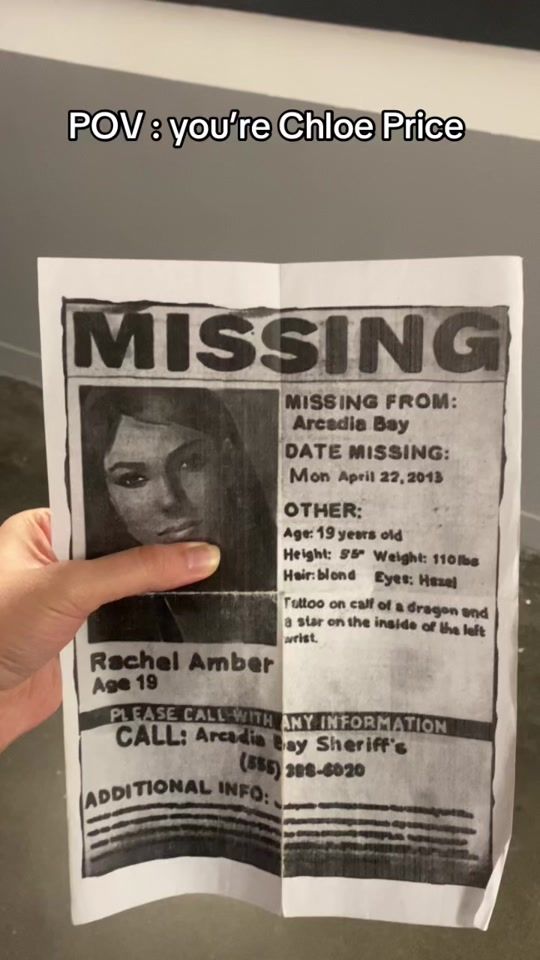 POV : you're Chloe Price
MISSING
MISSING FROM:
Arcadia Bay
DATE MISSING:
Mon April 22, 2013
OTHER:
Age: 19 years old
Height: 5'5" Weight: 110 lbs
Hair: blond Eyes: Hazel
Tattoo on calf of a dragon and
a star on the inside of the left
wrist.
Rachel Amber
Age 19
PLEASE CALL WITH ANY INFORMATION
CALL: Arcadia Bay Sheriff's
(555) 398-6020
ADDITIONAL INFO: